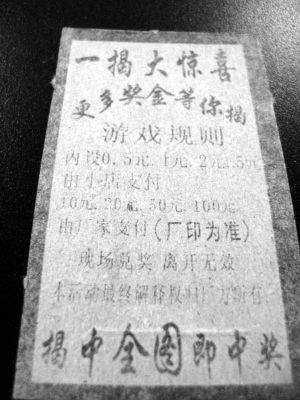 一揭大惊喜
更多奖金等你揭
游戏规则
内设0.5元.1元.2元.5元
由生活店支付
10元.20元.50元.100元.
由厂家支付(厂印为准)
现场兑奖 离开无效
本活动最终解释权归厂方所有
揭中全图即中奖